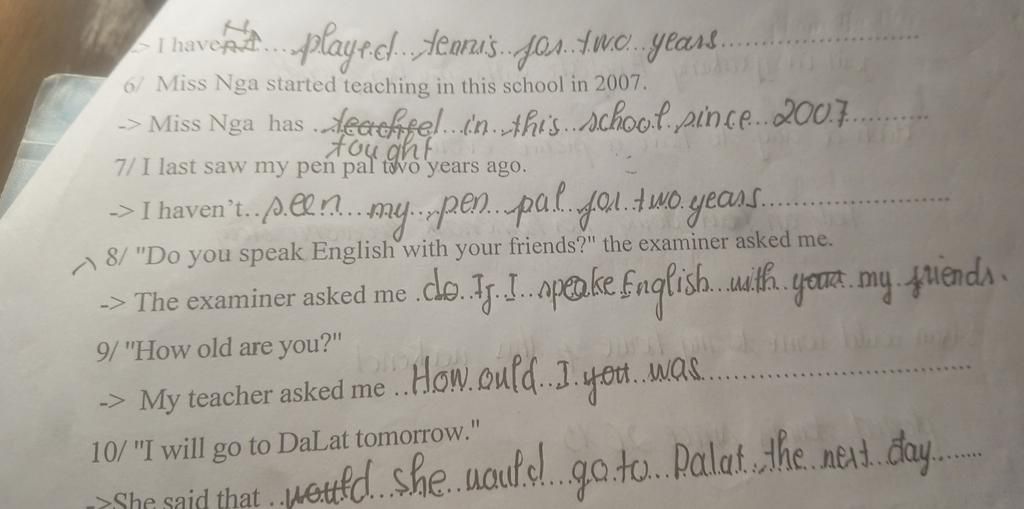 -> I haven't... played...tennis...for..two...years..................................
6/ Miss Nga started teaching in this school in 2007.
-> Miss Nga has ..teached...in..this...school..since...2007..............
tought
7/ I last saw my pen pal two years ago.
-> I haven't..seen....my...pen...pal..for..two.years..................................
8/ "Do you speak English with your friends?" the examiner asked me.
-> The examiner asked me .do.If.I...speake English...with..your.my.friends.
9/ "How old are you?"
-> My teacher asked me ..How.ould..I.you..was...............................
10/ "I will go to DaLat tomorrow."
->She said that ..would...she..would...go.to...Dalat..the..next..day.......